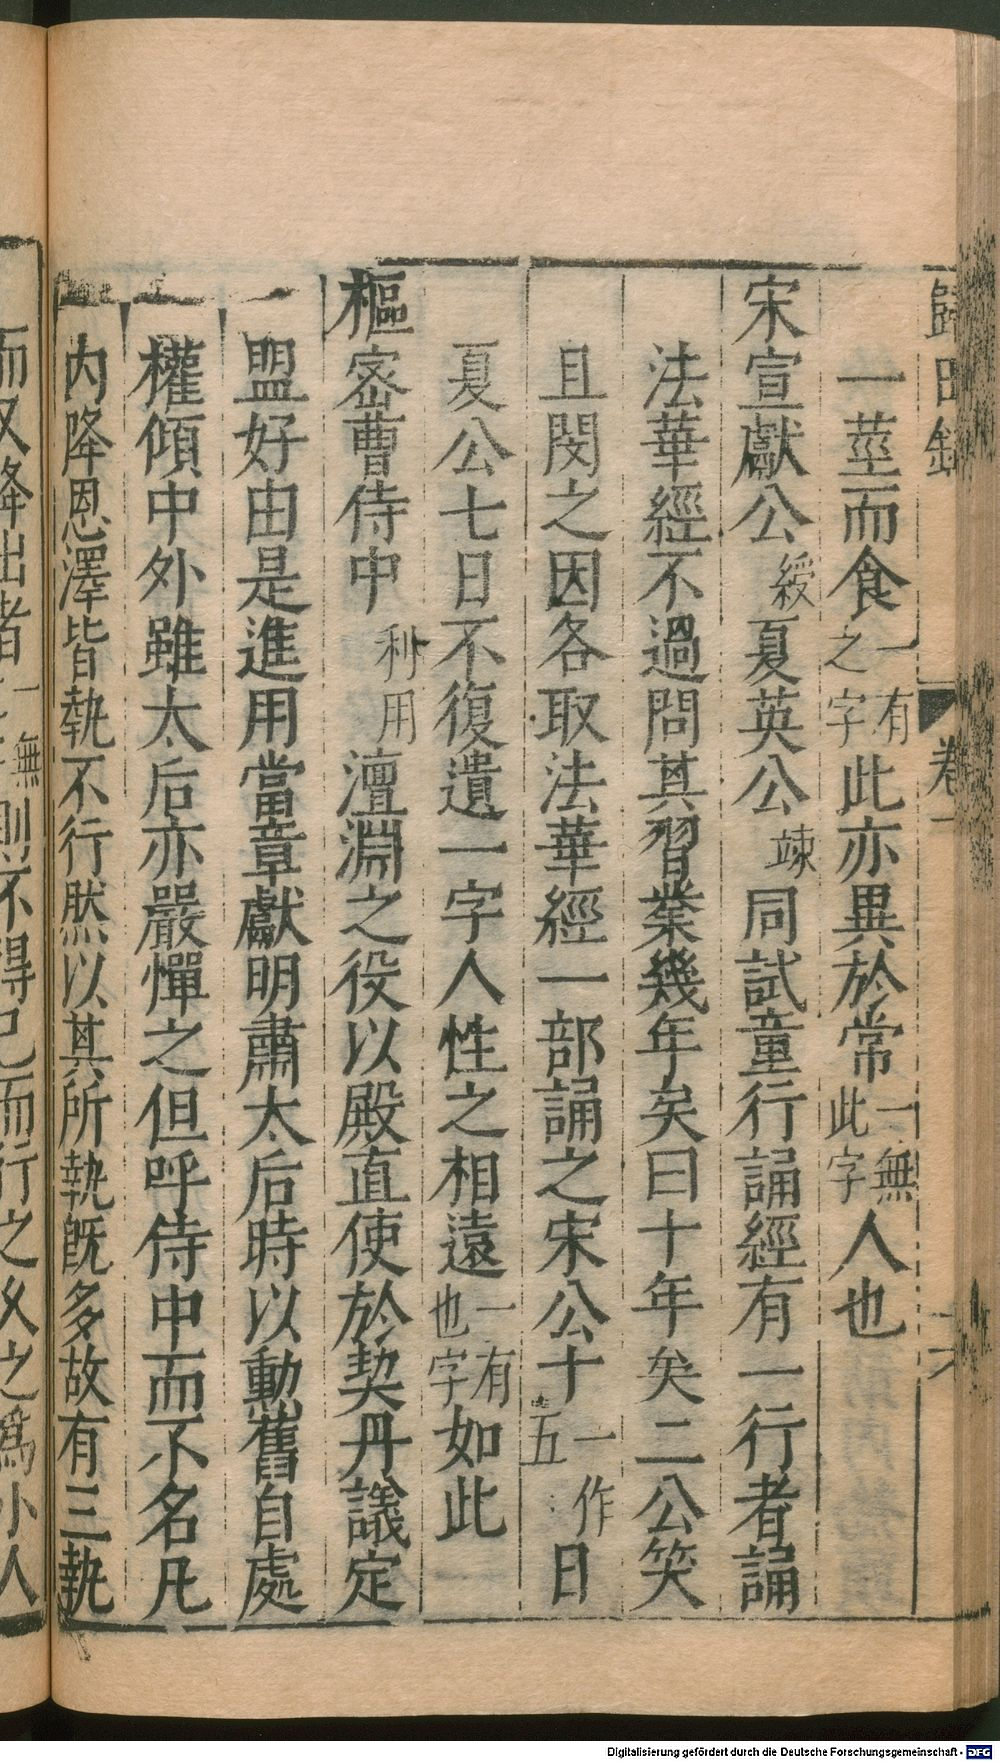 歸田錄 卷一
一莖而食一有之字此亦異於常一無此字人也
宋宣獻公綬夏英公竦同試童行誦經有一行者誦
法華經不過問其習業幾年矣曰十年矣二公笑
且閔之因各取法華經一部誦之宋公十一作五日
夏公七日不復遺一字人性之相遠一有也字如此
樞宻曹侍中利用澶淵之役以殿直使於契丹議定
盟好由是進用當章獻明肅太后時以勳舊自處
權傾中外雖太后亦嚴憚之但呼侍中而不名凡
内降恩澤皆執不行然以其所執既多故有三執
而又降出者一無則不得已而行之久之爲小人
Digitalisierung gefördert durch die Deutsche Forschungsgemeinschaft - DFG